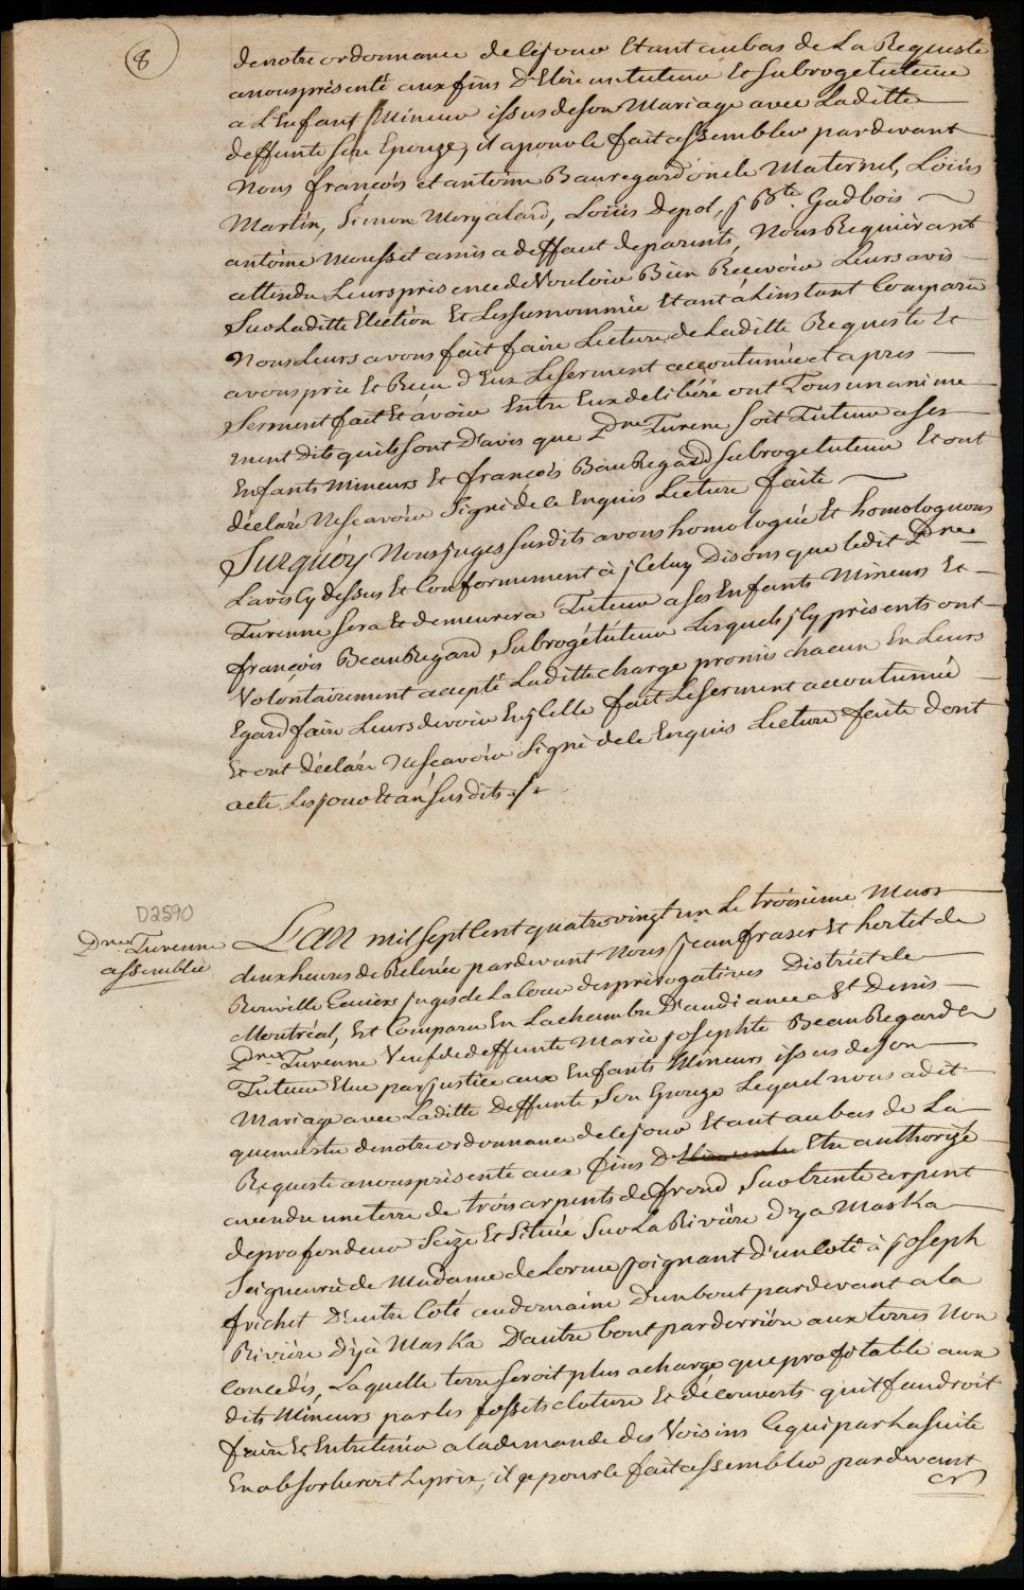 8
denotre ordonnance de Cejour Etant au bas de La Requeste
anous présenté aux fins D'Elire un tuteur Et Subrogé tuteur
a L'Enfant Mineur issus deson Mariage avec Laditte
deffunte son Epouze, il a pour le fait assembler pardevant
Nous françois et antoine Bauregard oncle Maternel, Loüis
Martin, Simon Alard, Loüis Depol, j Bte. Gadbois
antoine Mousset amis a deffaut de parents, Nous Requiérant
attendu Leurs présence de Vouloir Bien Recevoir Leurs avis
Sur Laditte Election Et Lessusnommée Etant à L'instant Comparu
Nous Leurs avons fait faire Lecture de Laditte Requeste Et
avons pris Et Recu d'Eux Le Serment accoutumée et apres
Serment fait Et avoir Entre Eux delibéré ont Tous unanime
ment dits quils sont D'avis que Dne Turene soit Tuteur a ses
Enfants Mineurs Et françois BeauRegard Subrogé tuteur Et ont
déclaré Ne scavoir Signé de ce Enquis Lecture faite
Surquoy Nous juges susdits avons homologuée Et homologuons
L'avis Cy dessus Et Conformement à jCeluy Disons que ledit Dne
Turenne sera Et demeurera Tuteur a ses Enfants Mineurs Et
françois BeauRegard, Subrogétuteur Lesquels jCy présents ont
Volontairement accepté Laditte charge promis chacun En Leurs
Egard faire Leurs devoir En jCelle fait Le Serment accoutumée
Et ont déclaré Ne scavoir Signé de ce Enquis Lecture faite dont
acte Les jour Et an Susdits ./.
D2590
Dne Turenne
assemblée
L'an mil sept Cent quatre vingt un Le troisieme Mars
deux heures de Relevée pardevant Nous jean fraser Et hertel de
Rouville Ecuiers juges de La Cour des prérogatives District de
Montréal, Est Comparu En La chambre D'audiance a St. Denis
Dne Turenne Veuf de deffunte Marie josephte BeauRegard &
Tuteur Elue par justice aux Enfants Mineurs issus de son
Mariage avec Laditte Deffunte, Son Epouze Lequel nous a dit
quen vertu denotre ordonnance de Cejour Etant au bas de La
Requeste anous présenté aux fins D' Etre authorizé
a vendre une terre de trois arpents de frond Sur trente arpent
de profondeur Seize Et Située Sur La Riviére D'ya Maska
Seigneurie de Madame de Lorme joignant d'un Coté à joseph
frichet D'autre Coté au domaine D'un bout par devant a la
Riviére D'ya Maska D'autre bout par derriére aux terres Non
Concedés, Laquelle terre seroit plus a charge que profitable aux
dits Mineurs par les fossets cloture Et découverts quil faudroit
faire Et Entretenir a la demande des Voisins Ce qui par La suite
En absorberoit Le prix, il a pour le fait assembler pardevant